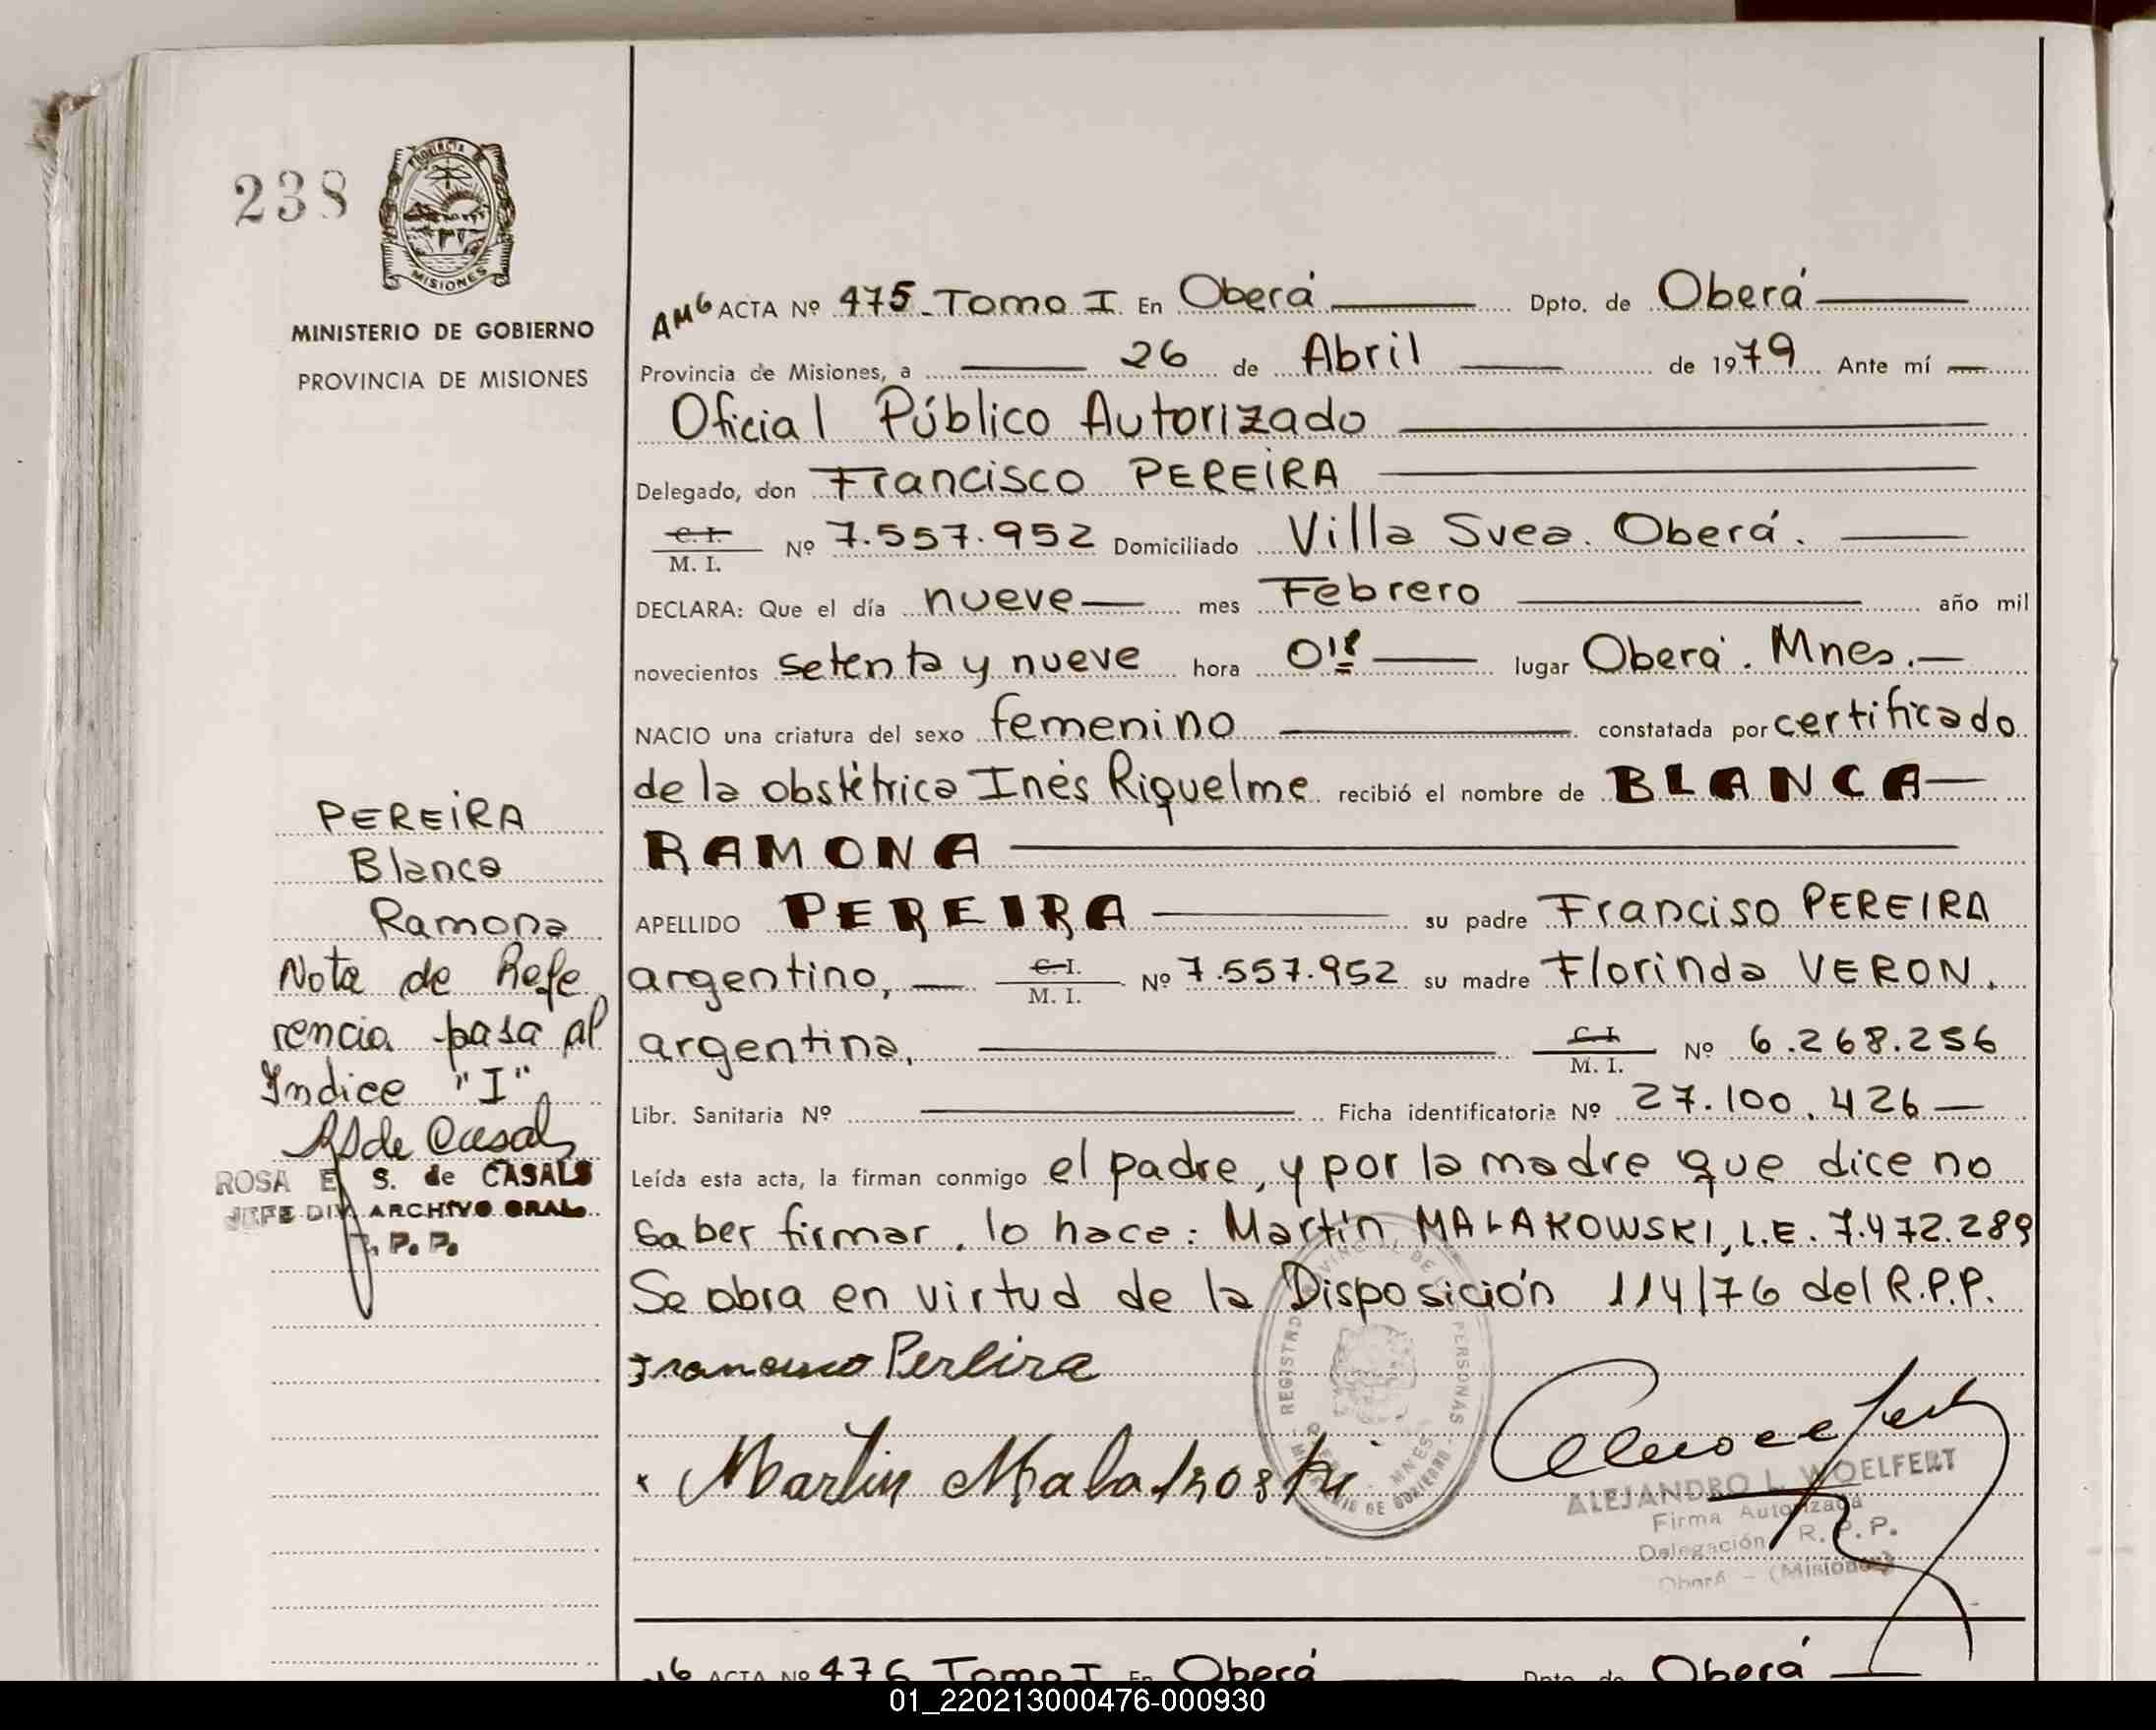 238
PROVINCIA DE
MISIONES
MINISTERIO DE GOBIERNO
PROVINCIA DE MISIONES
AMG ACTA Nº 475 - Tomo I En Oberá Dpto. de Oberá
Provincia de Misiones, a 26 de Abril de 1979 Ante mí
Oficial Público Autorizado
Delegado, don Francisco PEREIRA
C. I. / M. I. Nº 7.557.952 Domiciliado Villa Svea. Oberá.
DECLARA: Que el día nueve mes Febrero año mil
novecientos setenta y nueve hora lugar Oberá. Mnes.
NACIO una criatura del sexo femenino constatada por certificado
de la obstétrica Inés Riquelme recibió el nombre de BLANCA
RAMONA
APELLIDO PEREIRA su padre Franciso PEREIRA
argentino, C. I. / M. I. Nº 7.557.952 su madre Florinda VERON.
argentina, C. I. / M. I. Nº 6.268.256
Libr. Sanitaria Nº Ficha identificatoria Nº 27.100.426
Leída esta acta, la firman conmigo el padre, y por la madre que dice no
saber firmar, lo hace: Martín MALAKOWSKI, L.E. 7.472.289
Se obra en virtud de la Disposición 114/76 del R.P.P.
Francisco Pereira
Martin Malakoski
ALEJANDRO L. WOELFERT
Firma Autorizada
Delegación R. P. P.
Oberá - (Misiones)
PEREIRA
Blanca
Ramona
Nota de Refe
rencia pasa al
Indice "I"
RS de Casals
ROSA E. S. de CASALS
JEFE DIV. ARCHIVO GRAL.
R. P. P.
ACTA Nº 476 Tomo I En Oberá Dpto. de Oberá
01_220213000476-000930